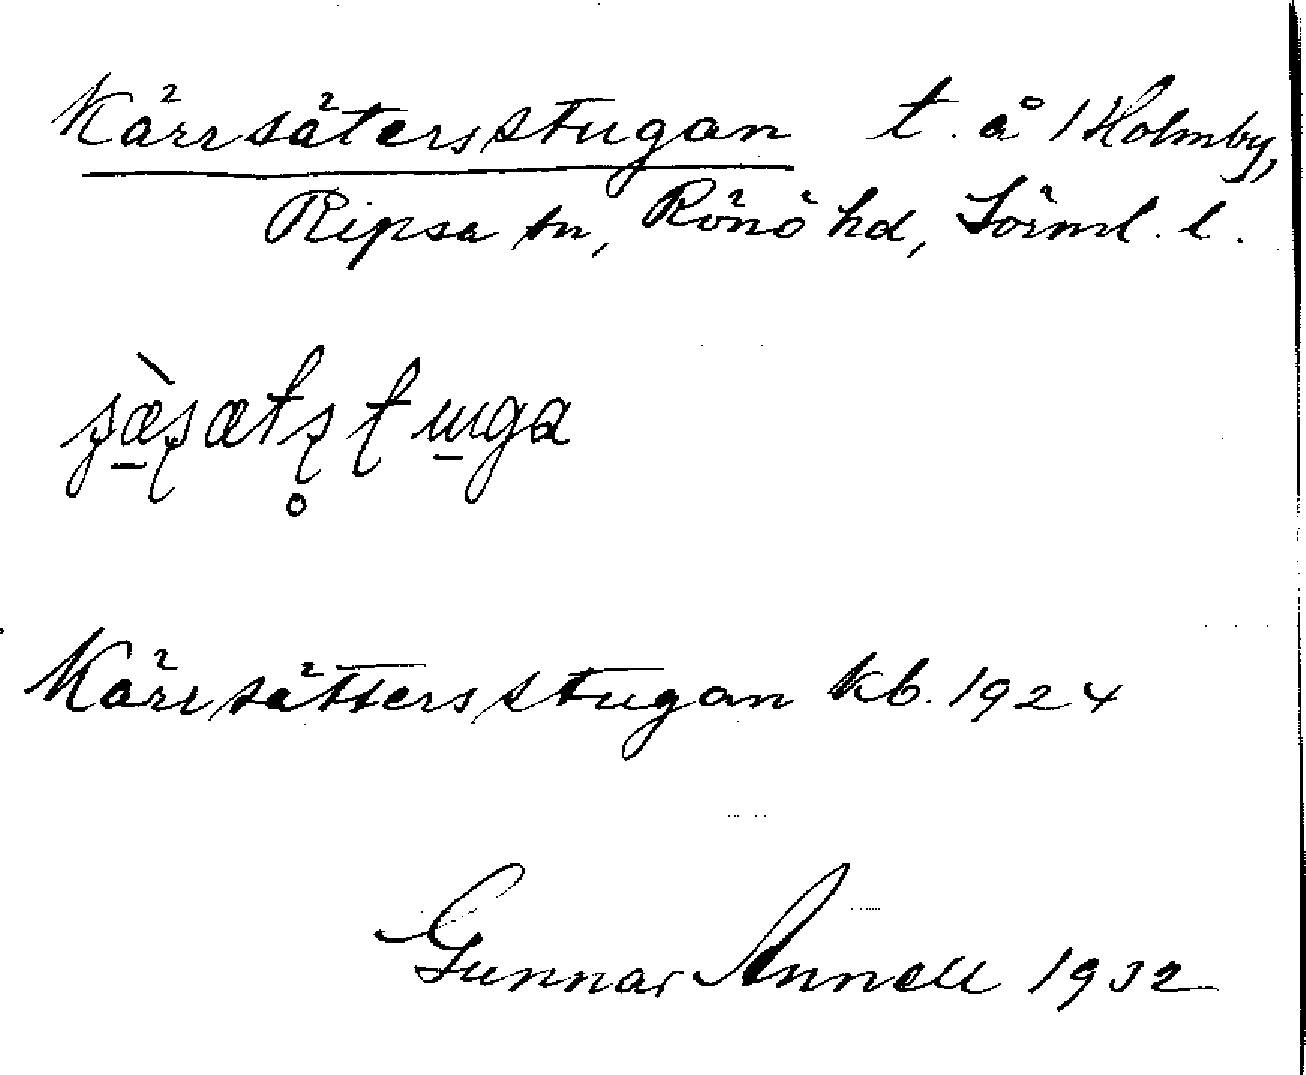 Kärrsätersstugan t. å 1 Holmby,
Ripsa sn, Rönö hd, Sörml. l.
Kärrsättersstugan kb. 1924
Gunnar Annell 1932